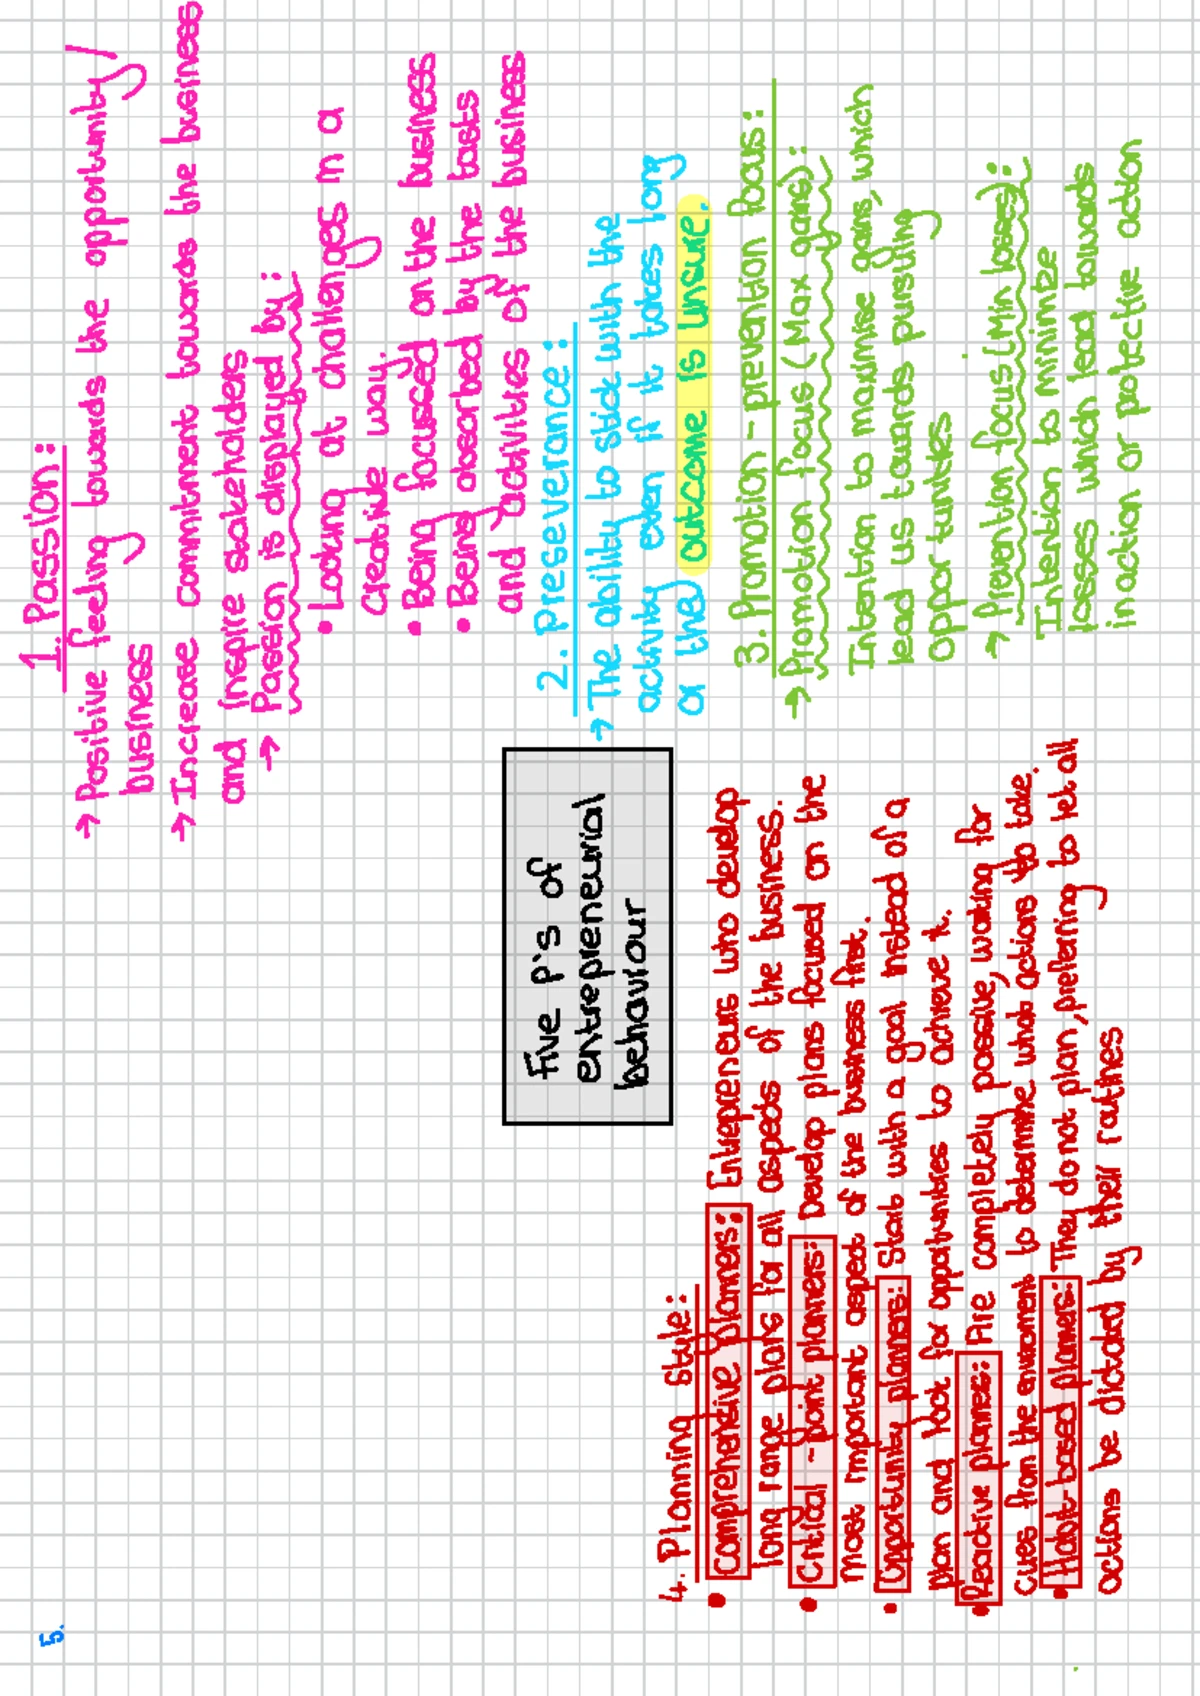 5.
1. Passion:
→ Positive feeling towards the opportunity/
business
→ Increase commitment towards the business
and inspire stakeholders
→ Passion is displayed by:
• Looking at challenges in a
creative way.
• Being focussed on the business
• Being absorbed by the tasks
and activities of the business
2. Preseverance:
→ The ability to stick with the
activity even if it takes long
or the outcome is unsure.
3. Promotion - prevention focus:
→ Promotion focus (Max gains):
Intention to maximise gains, which
lead us towards pursuing
opportunities
→ Prevention focus (Min losses):
Intention to minimize
losses which lead towards
inaction or protective action
Five P's of
entrepreneurial
behaviour
4. Planning Style:
• Comprehensive planners: Entrepreneurs who develop
long range plans for all aspects of the business.
• Critical - point planners: Develop plans focused on the
most important aspect of the business first.
• Opportunity planners: Start with a goal instead of a
plan and look for opportunities to achieve it.
• Reactive planners: Are completely passive, waiting for
cues from the enviroment to determine what actions to take.
• Habit-based planners: They do not plan, preferring to let all
actions be dictated by their routines